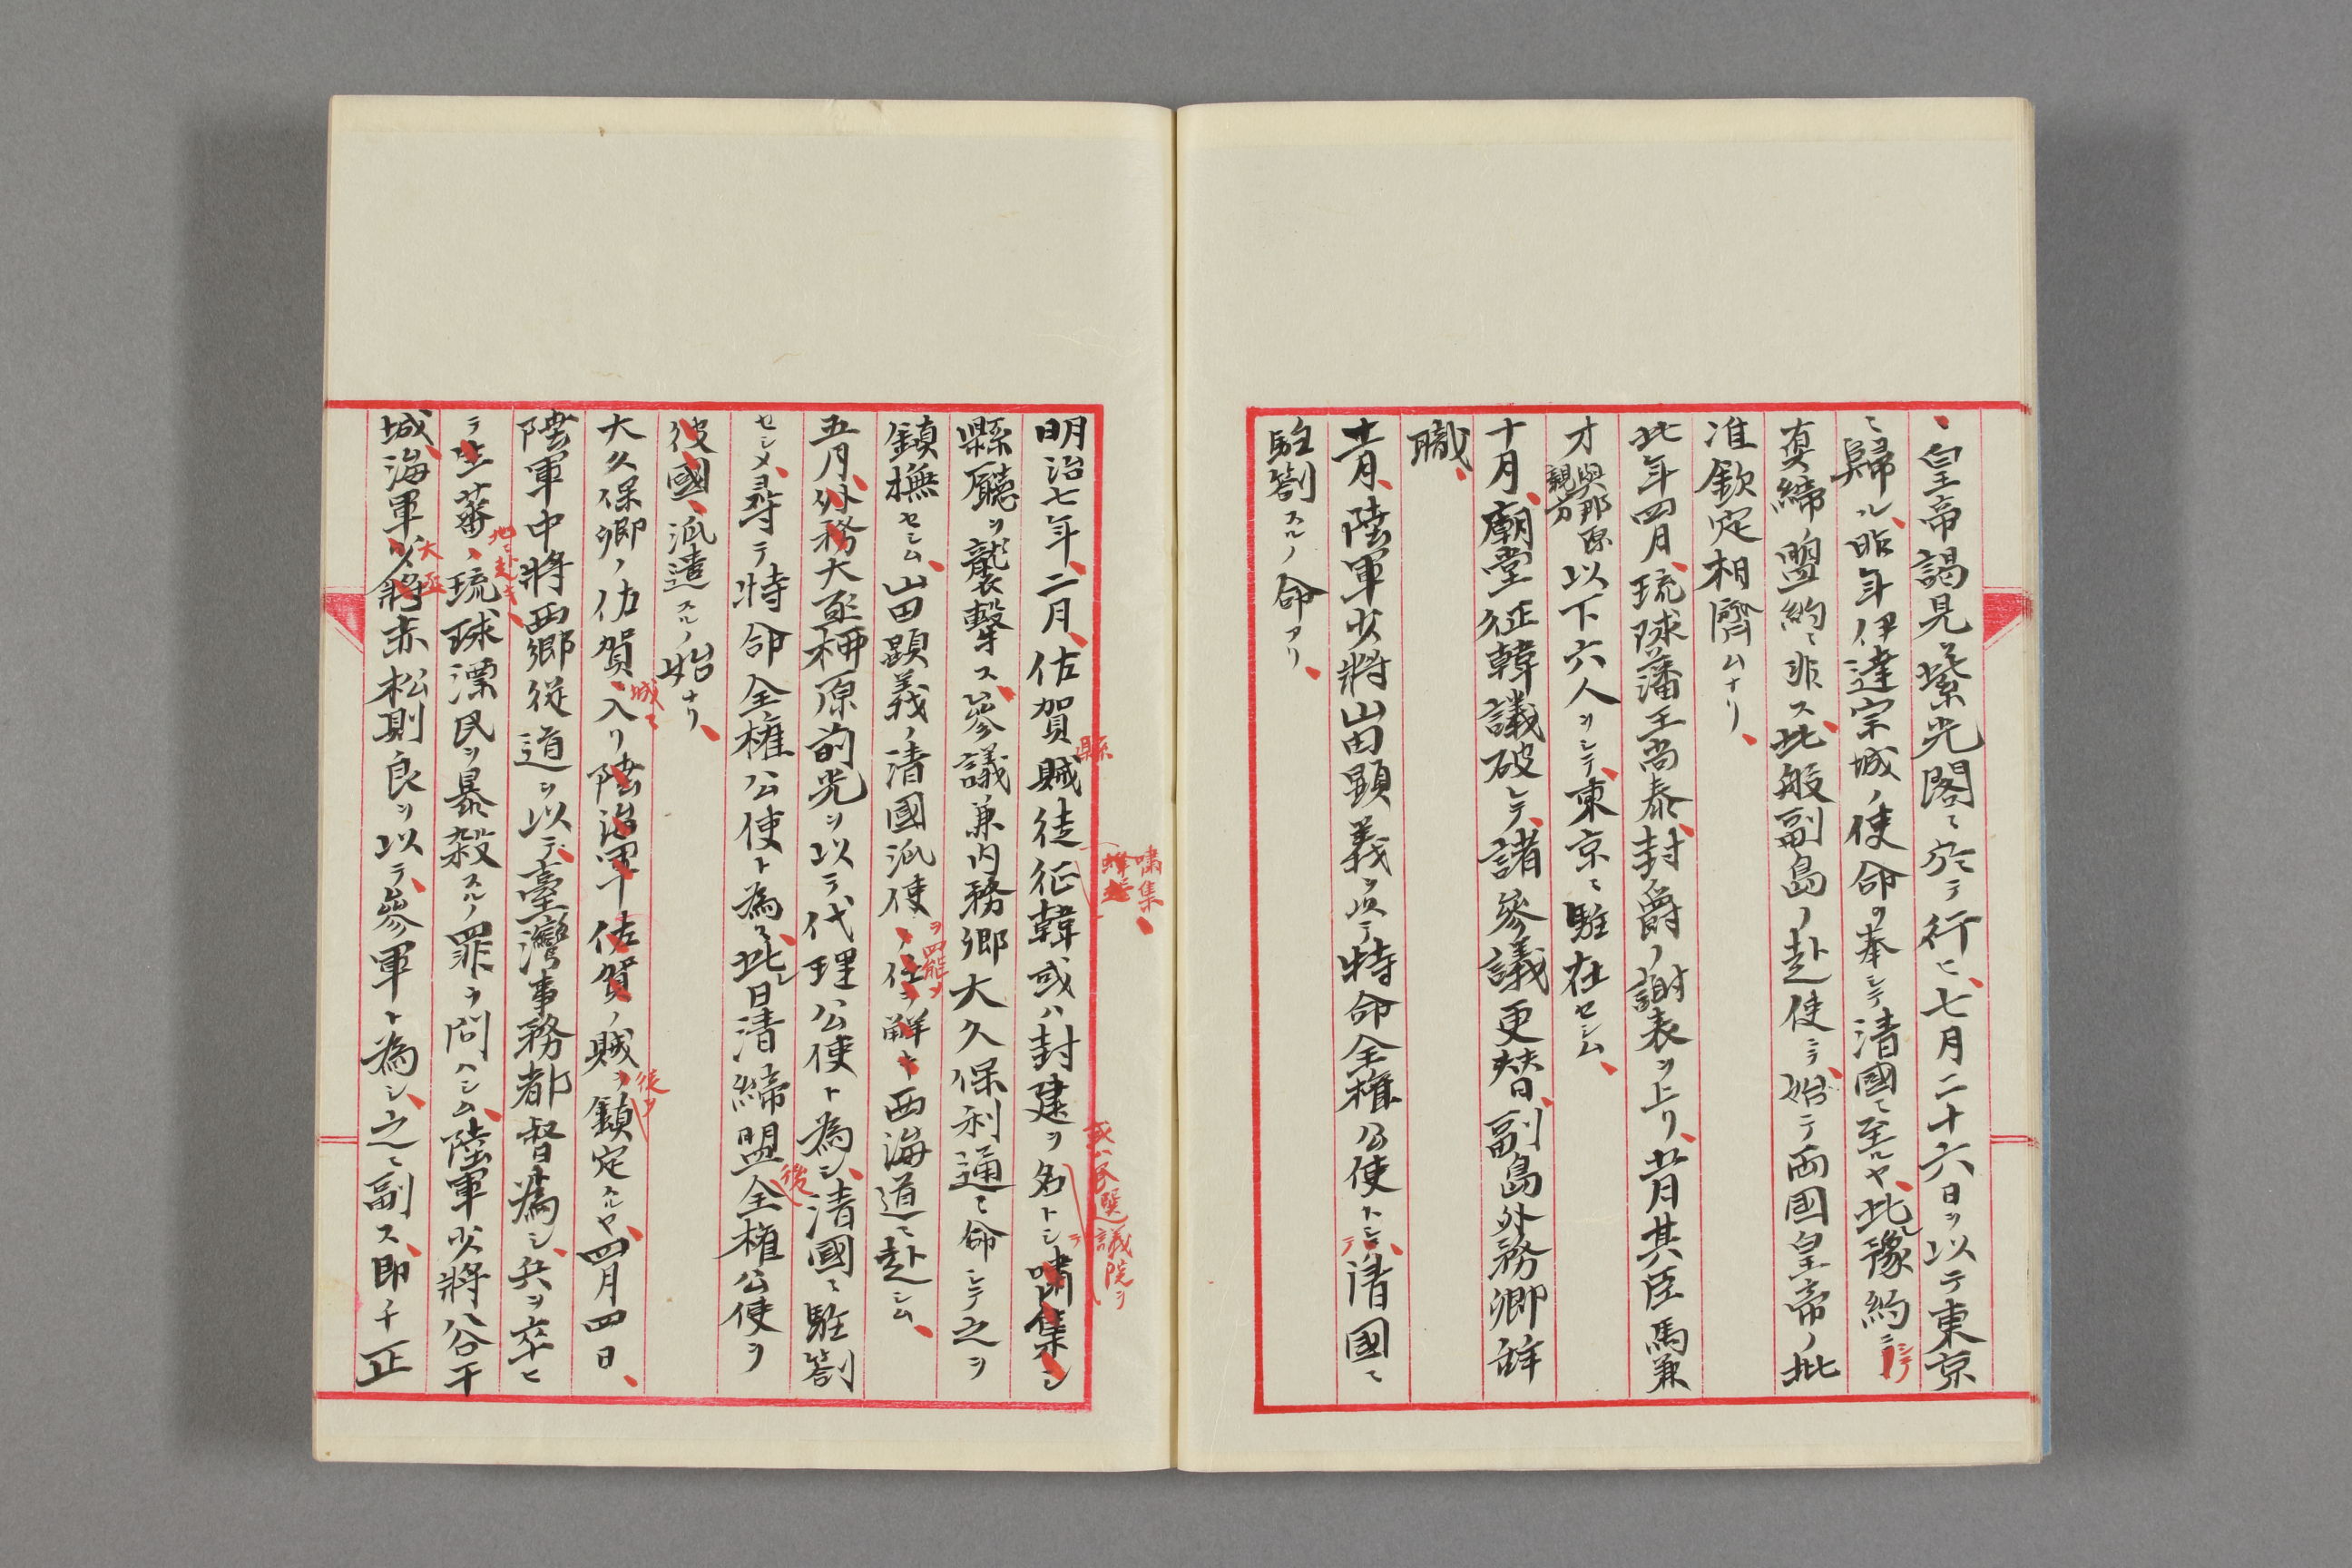 皇帝謁見ヲ紫光閣ニ於テ行ヒ、七月二十六日ヲ以テ東京
ニ歸ル、昨年伊達宗城ノ使命ヲ奉シテ清國ニ至ルヤ、此豫約ニシテ
真締ノ盟約ニ非ス、此般副島ノ赴使ニテ、始テ両國皇帝ノ批
准欽定相濟ムナリ、
此年四月、琉球藩王尚泰、封爵ノ謝表ヲ上リ、其臣馬兼
才與那原親方以下六人ヲシテ、東京ニ駐在セシム、
十月、廟堂征韓議破レテ、諸參議更替、副島外務卿辞
職、
十一月、陸軍少將山田顕義ヲ以テ特命全権公使トシテ、清國ニ
駐劄スルノ命アリ、
明治七年、二月、佐賀縣賊徒征韓或ハ封建ヲ名トシ嘯集シ
嘯集、
蜂起
或ハ民選議院ヲ
縣廳ヲ襲撃ス、參議兼内務卿大久保利通ニ命シテ之ヲ
鎮撫セシム、山田顕義ノ清國派使ノ任ヲ解キ西海道ニ赴シム、
ヲ罷メ
五月、外務大丞柳原前光ヲ以テ代理公使ト為シ、清國ニ駐劄
後
セシメ、尋テ特命全権公使ト為ス、此レ日清締盟全権公使ヲ
彼國、派遣スルノ始ナリ、
大久保卿ノ佐賀城ニ入リ陸海軍佐賀ノ賊ヲ鎮定スルヤ、四月四日、
徒ヲ
陸軍中將西郷従道ヲ以テ、臺灣事務都督為シ、兵ヲ卒ヒ
地ニ赴キ、
テ生蕃、琉球漂民ヲ暴殺スルノ罪ヲ問ハシム、陸軍少將谷干
大丞
城、海軍少將赤松則良ヲ以テ、參軍ト為シ、之ニ副ス、即チ正